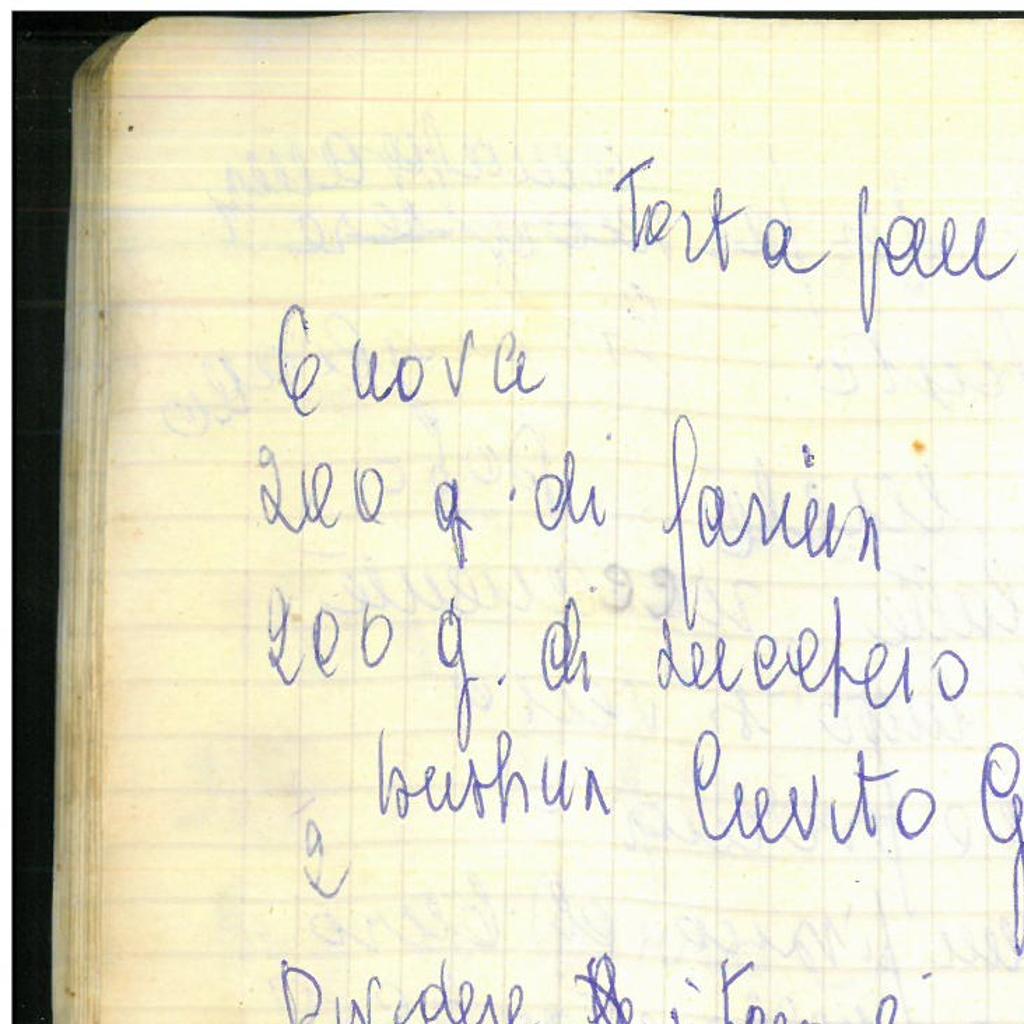 Torta pan
6 uova
200 g. di farina
200 g. di zucchero
bustina lievito
Dividere i